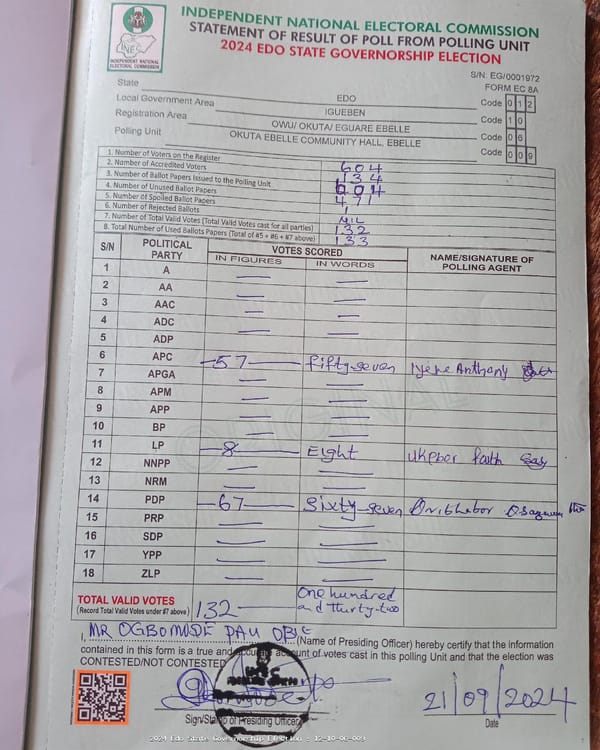 INDEPENDENT NATIONAL ELECTORAL COMMISSION
STATEMENT OF RESULT OF POLL FROM POLLING UNIT
2024 EDO STATE GOVERNORSHIP ELECTION
INEC
INDEPENDENT NATIONAL
ELECTORAL COMMISSION
S/N: EG/0001972
FORM EC 8A
State EDO Code 0 1 2
Local Government Area IGUEBEN Code 1 0
Registration Area OWU/ OKUTA/ EGUARE EBELLE Code 0 6
Polling Unit OKUTA EBELLE COMMUNITY HALL, EBELLE Code 0 0 9
1. Number of Voters on the Register 604
2. Number of Accredited Voters 134
3. Number of Ballot Papers Issued to the Polling Unit 604
4. Number of Unused Ballot Papers 471
5. Number of Spoiled Ballot Papers 1
6. Number of Rejected Ballots NIL
7. Number of Total Valid Votes (Total Valid Votes cast for all parties) 132
8. Total Number of Used Ballots Papers (Total of #5 + #6 + #7 above) 133
S/N POLITICAL PARTY VOTES SCORED NAME/SIGNATURE OF POLLING AGENT
IN FIGURES IN WORDS
1 A — —
2 AA — —
3 AAC — —
4 ADC — —
5 ADP — —
6 APC —57— fifty-seven Iyere Anthony
7 APGA — —
8 APM — —
9 APP — —
10 BP — —
11 LP —8— EIght Ukpbor faith
12 NNPP — —
13 NRM — —
14 PDP —67— Sixty-seven
15 PRP — —
16 SDP — —
17 YPP — —
18 ZLP — —
TOTAL VALID VOTES 132— One hundred
(Record Total Valid Votes under #7 above) and thirty-two
I, MR OGBOMODE PAU OBIE (Name of Presiding Officer) hereby certify that the information
contained in this form is a true and account of votes cast in this polling Unit and that the election was
CONTESTED/NOT CONTESTED
21/09/2024
Sign/Stamp of Presiding Officer Date
2024 Edo State Governorship Election - 12-10-06-009